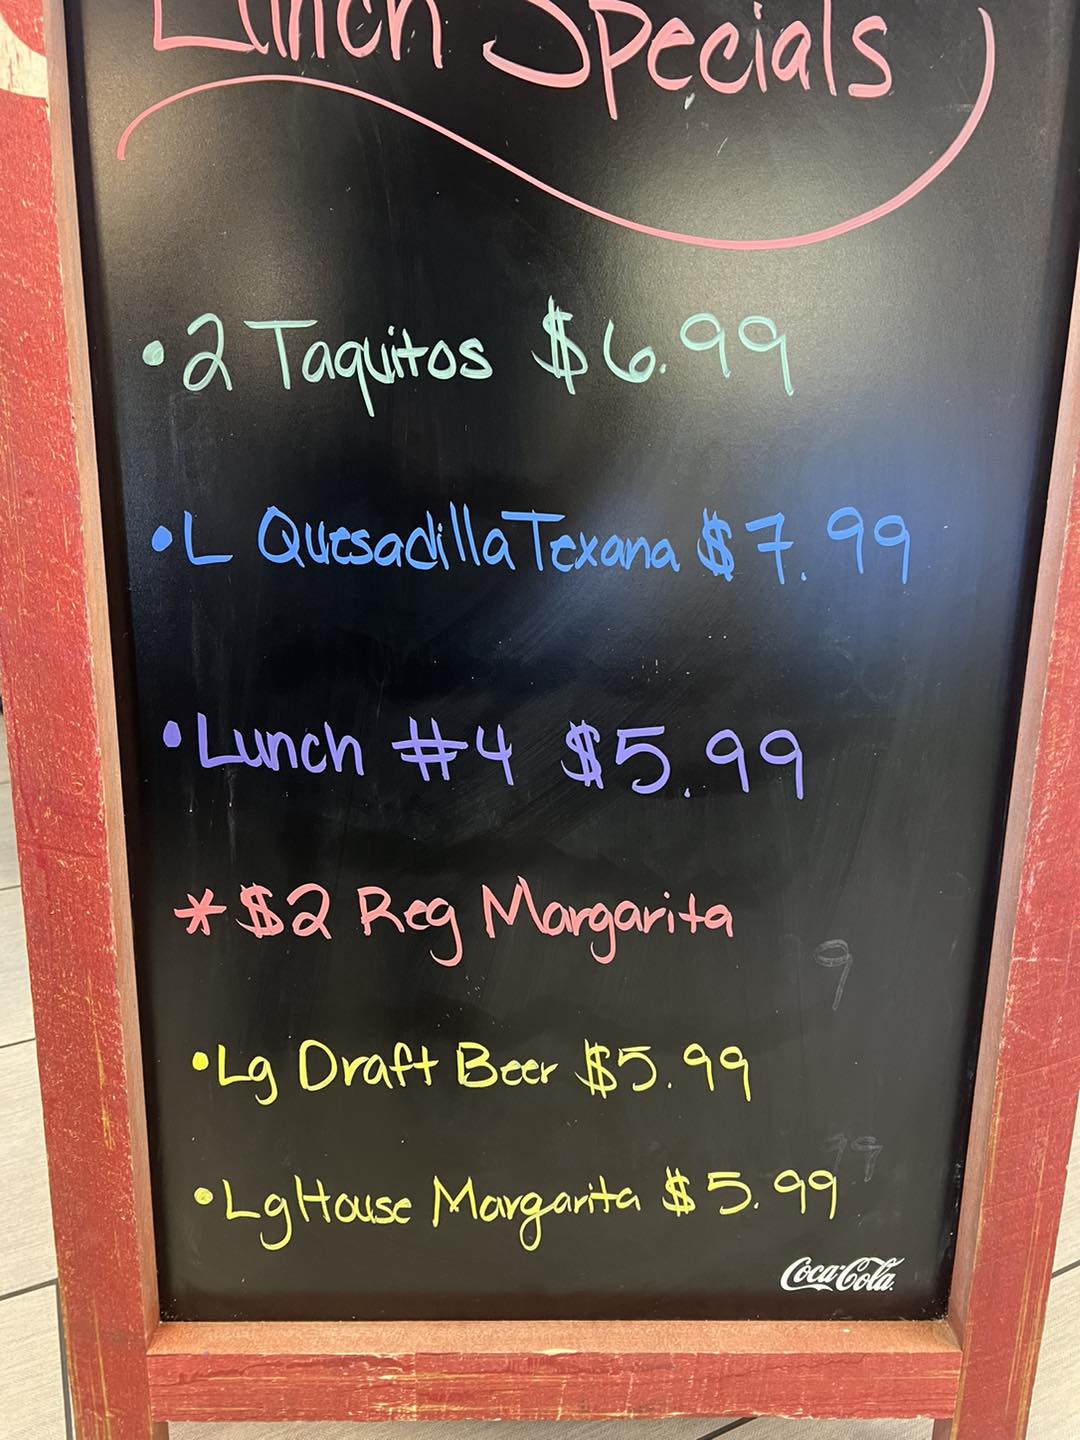 Lunch Specials
• 2 Taquitos $6.99
• L Quesadilla Texana $7.99
• Lunch #4 $5.99
* $2 Reg Margarita
9
• Lg Draft Beer $5.99
99
• Lg House Margarita $5.99
Coca-Cola